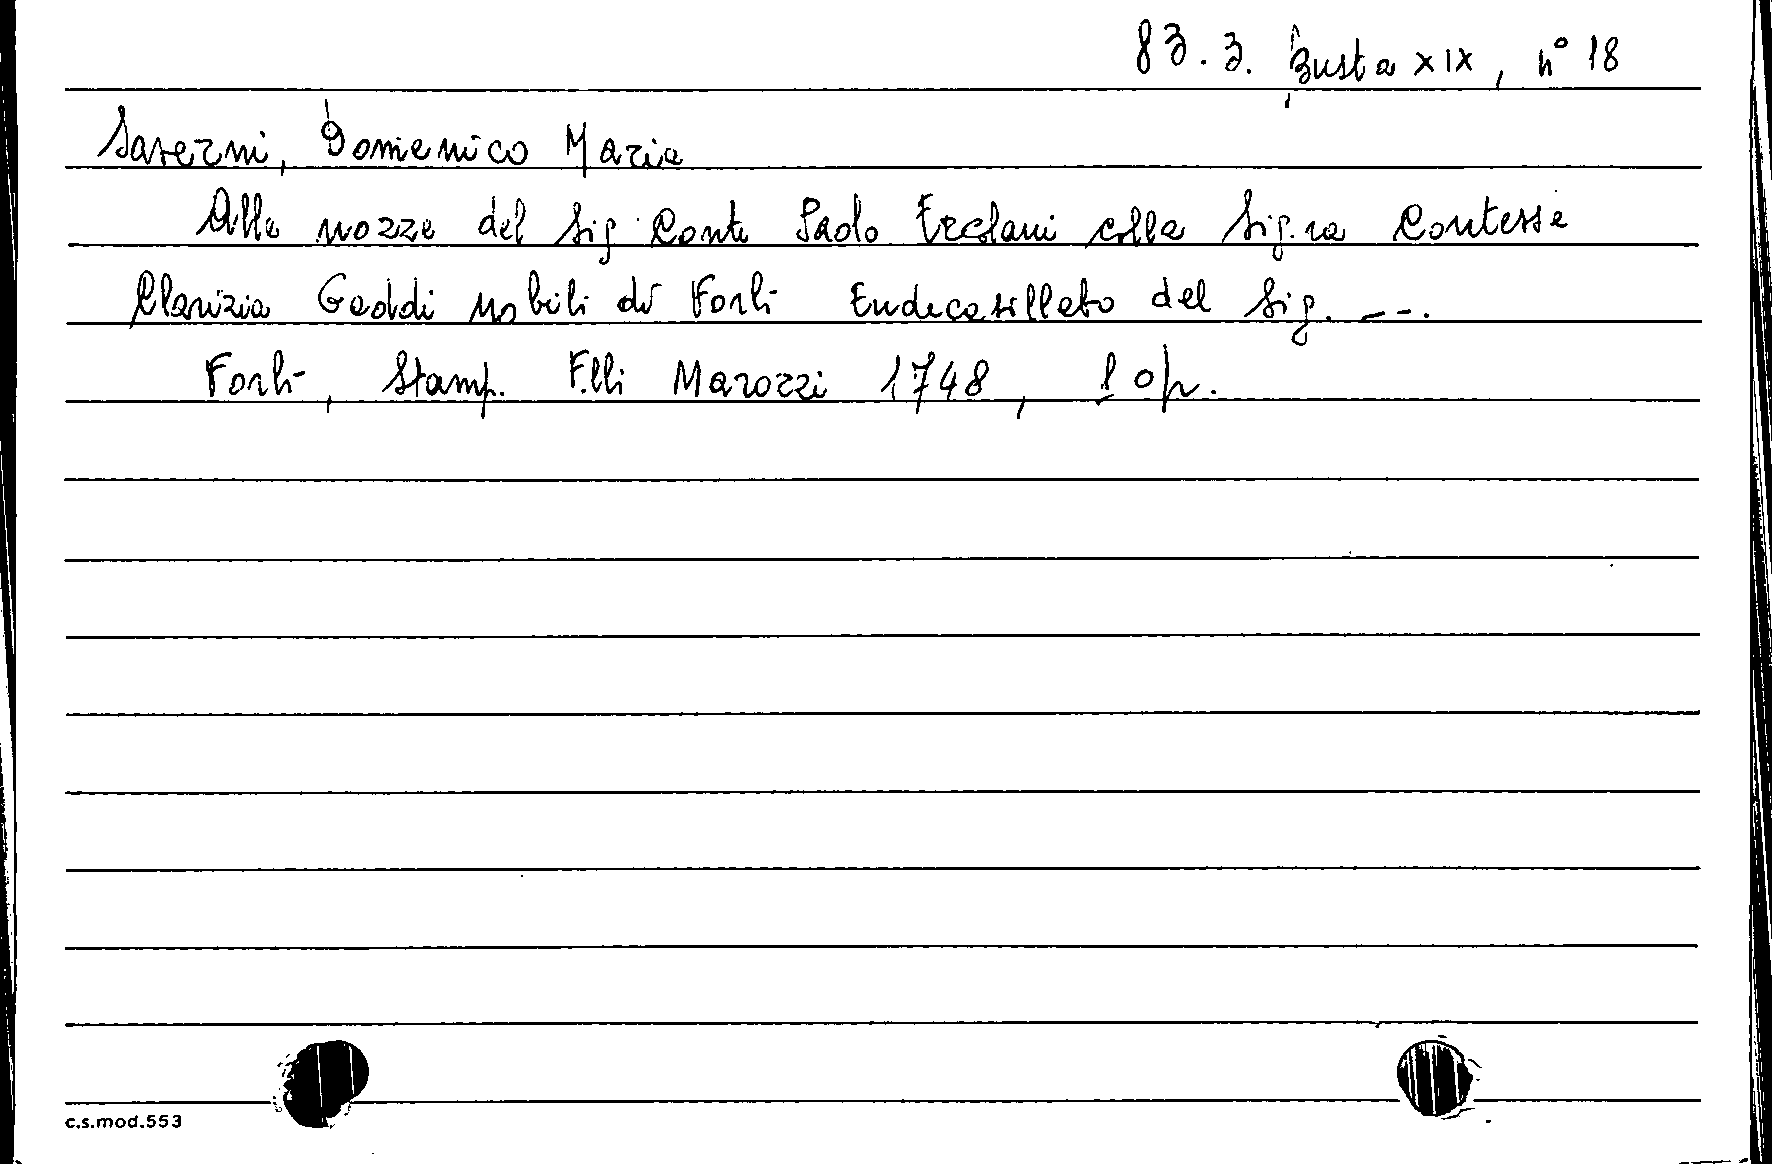 83.3. Busta XIX, n° 18
Saverni, Domenico Maria
Alle nozze del Sig Conte Paolo Ercolani colla Sig.ra Contessa
Clarizia Gaddi nobili di Forlì Endecasillabo del Sig. ---.
Forlì, Stamp. F.lli Marozzi 1748, 1 op.
c.s.mod.553